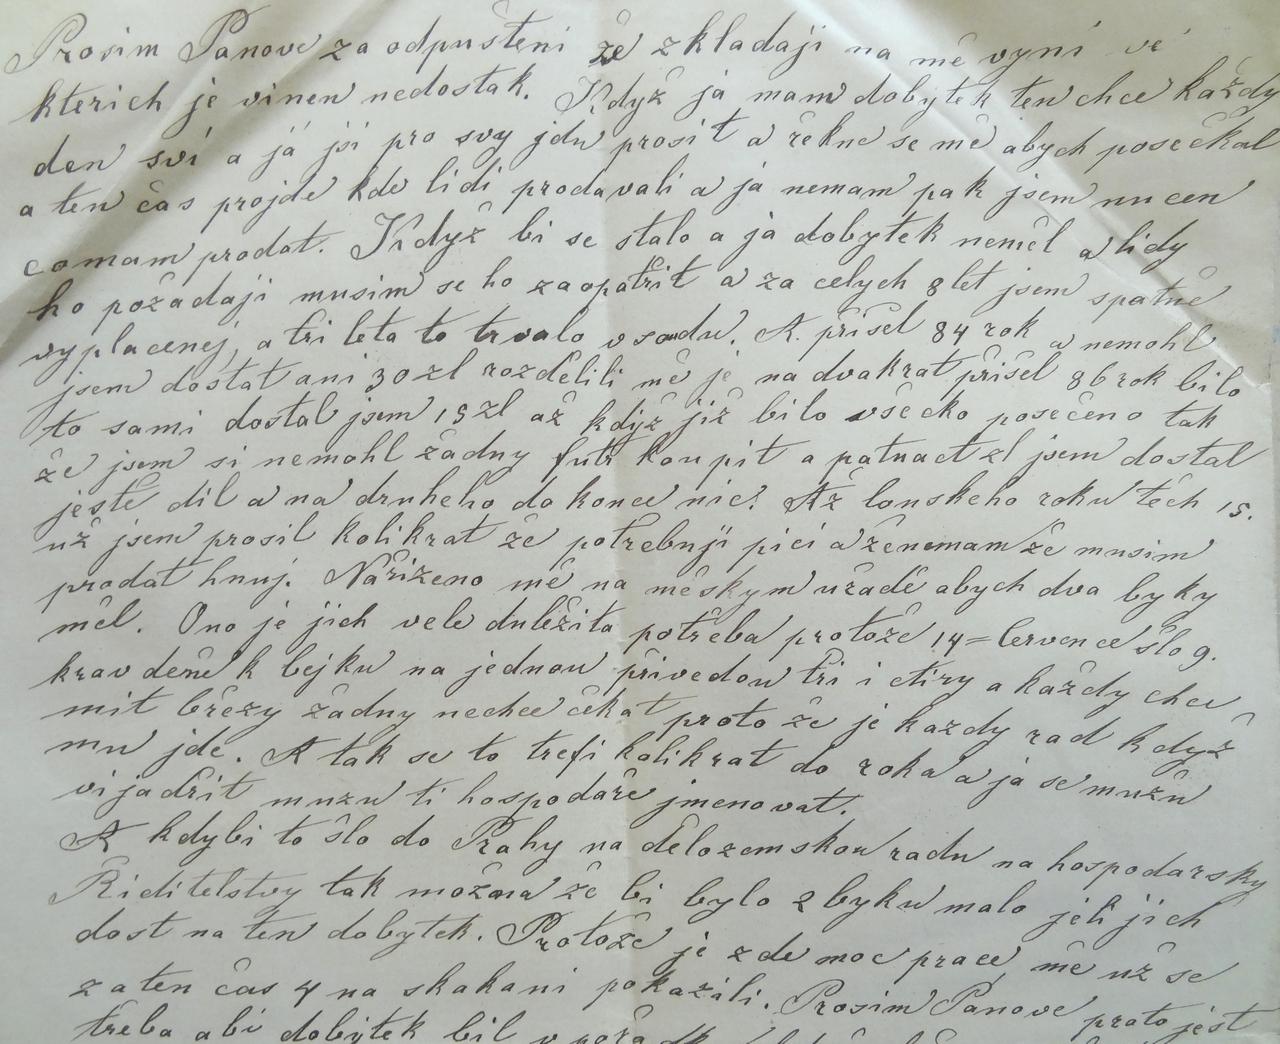 Prosim Panove za odpušteni že zkladaji na mě vyní ve
kterich je vinen nedostak. Když já mam dobytek ten chce každy
den sví a já jsi pro svy jdu prosit a řekne se mě abych posečkal
a ten čas projde kde lidi prodavali a já nemam pak jsem nucen
comam prodat. Když bi se stalo a já dobytek neměl a lidy
ho požadaji musim se ho zaopatřit a za celych 8 let jsem spatně
vyplacenej, a tri leta to trvalo v soudu. A přišel 84 rok a nemohl
jsem dostat ani 30 zl rozdělili mě je na dvakrat přišel 86 rok bilo
to sami dostal jsem 15 zl až kdjž již bilo všecko posečeno tak
že jsem si nemohl žadny futr koupit a patnact zl jsem dostal
ještě dil a na druheho do konce nic! Až lonskeho roku těch 15.
už jsem prosil kolikrat že potřebuji pici a ženemam že musim
prodat hnuj. Nařizeno mě na měskym uřadě abych dva byky
měl. Ono je jich vele duležita potřeba protože 14 = Července šlo 9.
krav deně k bejku na jednou přivedou tři i čtiry a každy chce
mit březy žadny nechce čekat proto že je každy rad když
mu jde. A tak se to trefi kolikrat do roka a já se mužu
vijadřit mužu ti hospodaře jmenovat.
A kdybi to šlo do Prahy na dělozemskou radu na hospodarsky
Řiditelstvy tak možna že bi bylo 2 byku malo jeli jich
dost na ten dobytek. Protože je zde moc prace, mě už se
za ten čas 4 na skakani pokazili. Prosim Panove proto jest
třeba abi dobytek bil v